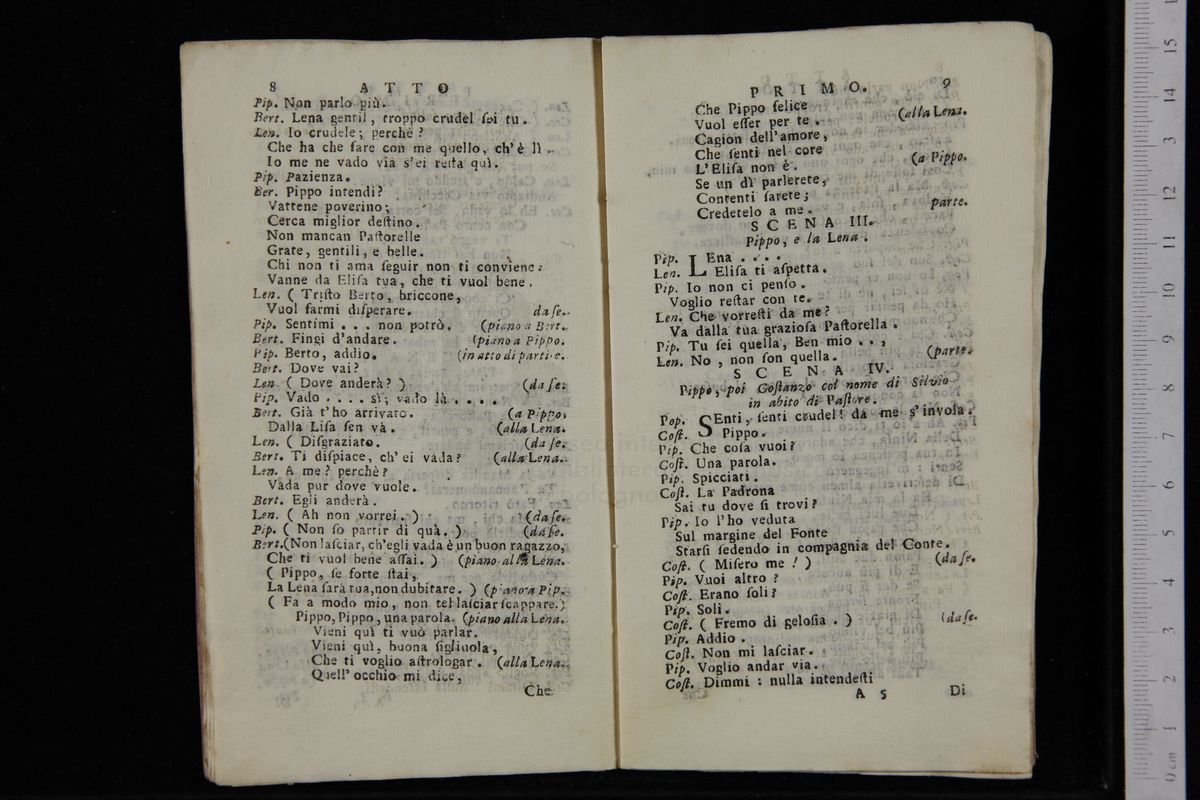 8 ATTO
Pip. Non parlo più.
Bert. Lena gentil, troppo crudel ſei tu.
Len. Io crudele; perchè?
Che ha che fare con me quello, ch'è lì..
Io me ne vado via s'ei reſta quì.
Pip. Pazienza.
Ber. Pippo intendi?
Vattene poverino;
Cerca miglior deſtino.
Non mancan Paſtorelle
Grate, gentili, e belle.
Chi non ti ama ſeguir non ti conviene:
Vanne da Eliſa tua, che ti vuol bene.
Len. (Triſto Berto, briccone,
Vuol farmi diſperare. da ſe.
Pip. Sentimi . . . non potrò. (piano a Bert.
Bert. Fingi d'andare. (piano a Pippo.
Pip. Berto, addio. (in atto di partire.
Bert. Dove vai?
Len. (Dove anderà?) (da ſe.
Pip. Vado . . . . sì; vado là . . . .
Bert. Già t'ho arrivato. (a Pippo,
Dalla Liſa ſen và. (alla Lena.
Len. (Diſgraziato. (da ſe.
Bert. Ti diſpiace, ch'ei vada? (alla Lena.
Len. A me? perchè?
Vada pur dove vuole.
Bert. Egli anderà.
Len. (Ah non vorrei.) (da ſe.
Pip. (Non ſo partir di quà.) (da ſe.
Bert.(Non laſciar, ch'egli vada è un buon ragazzo,
Che ti vuol bene aſſai.) (piano alla Lena.
(Pippo, ſe forte ſtai,
La Lena ſarà tua, non dubitare.) (piano a Pip.
(Fa a modo mio, non tel laſciar ſcappare.)
Pippo, Pippo, una parola. (piano alla Lena.
Vieni quì ti vuò parlar.
Vieni quì, buona figliuola,
Che ti voglio aſtrologar. (alla Lena.
Quell' occhio mi dice,
Che
PRIMO. 9
Che Pippo felice
Vuol eſſer per te. (alla Lena.
Cagion dell'amore,
Che ſenti nel core
L'Eliſa non è. (a Pippo.
Se un dì parlerete,
Contenti ſarete;
Credetelo a me. parte.
SCENA III.
Pippo, e la Lena.
Pip. LEna . . . .
Len. Eliſa ti aſpetta.
Pip. Io non ci penſo.
Voglio reſtar con te.
Len. Che vorreſti da me?
Va dalla tua grazioſa Paſtorella.
Pip. Tu ſei quella, Ben mio . . ,
Len. No, non ſon quella. (parte.
SCENA IV.
Pippo, poi Coſtanzo col nome di Silvio
in abito di Paſtore.
Pop. SEnti, ſenti crudel! da me s'invola.
Coſt. Pippo.
Pip. Che coſa vuoi?
Coſt. Una parola.
Pip. Spicciati.
Coſt. La Padrona
Sai tu dove ſi trovi?
Pip. Io l'ho veduta
Sul margine del Fonte
Starſi ſedendo in compagnia del Conte.
Coſt. (Miſero me!) (da ſe.
Pip. Vuoi altro?
Coſt. Erano ſoli?
Pip. Soli.
Coſt. (Fremo di geloſia.) (da ſe.
Pip. Addio.
Coſt. Non mi laſciar.
Pip. Voglio andar via.
Coſt. Dimmi: nulla intendeſti
A 5 Di